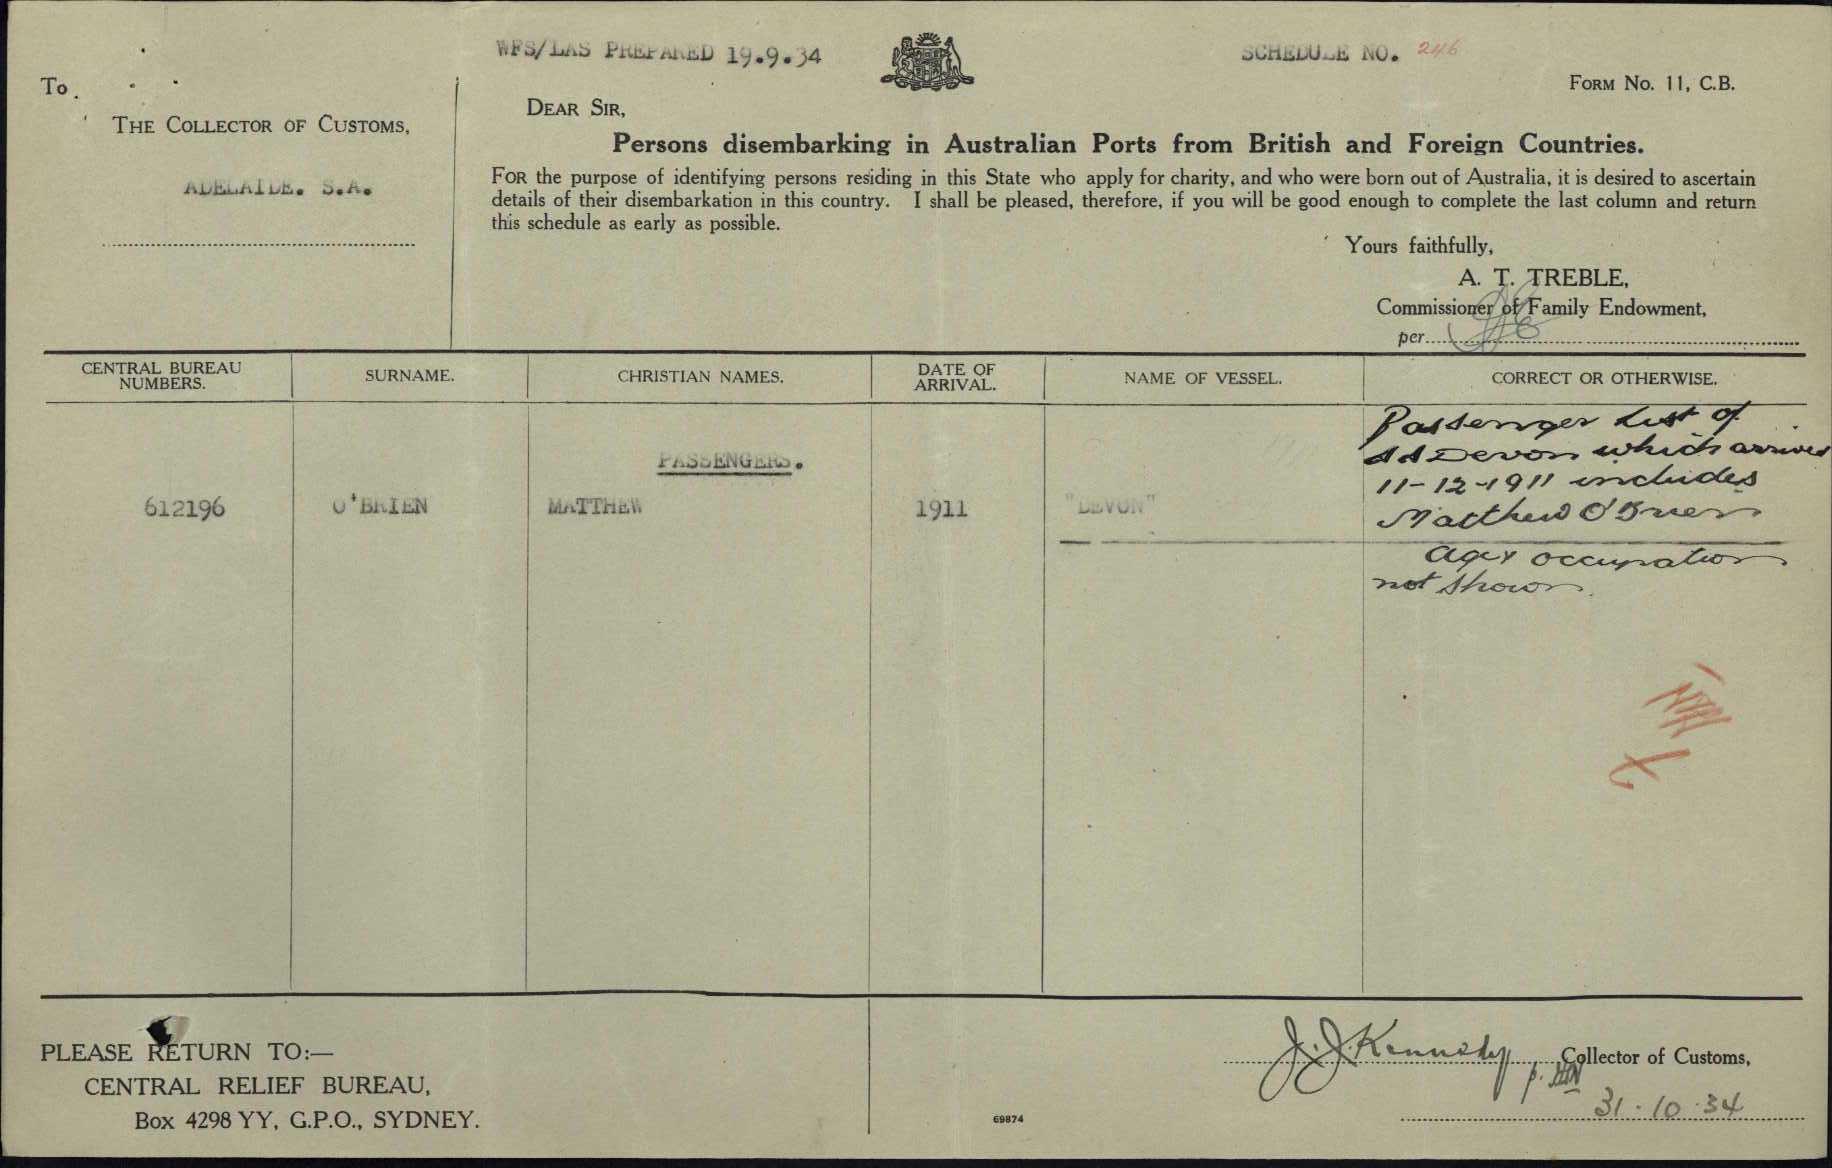 WFS/LAS PREPARED 19.9.34
SCHEDULE NO. 246
FORM No. 11, C.B.
To
THE COLLECTOR OF CUSTOMS,
ADELAIDE. S.A.
DEAR SIR,
Persons disembarking in Australian Ports from British and Foreign Countries.
FOR the purpose of identifying persons residing in this State who apply for charity, and who were born out of Australia, it is desired to ascertain
details of their disembarkation in this country. I shall be pleased, therefore, if you will be good enough to complete the last column and return
this schedule as early as possible.
Yours faithfully,
A. T. TREBLE,
Commissioner of Family Endowment,
per
CENTRAL BUREAU NUMBERS.
SURNAME.
CHRISTIAN NAMES.
DATE OF ARRIVAL.
NAME OF VESSEL.
CORRECT OR OTHERWISE.
PASSENGERS.
612196 O'BRIEN MATTHEW 1911 "DEVON"
Passenger List of
SS Devon which arrived
11-12-1911 includes
Matthew O'Brien
age & occupation
not shown.
PLEASE RETURN TO:—
CENTRAL RELIEF BUREAU,
Box 4298 YY, G.P.O., SYDNEY.
69874
J. J. Kennedy Collector of Customs,
p.
31.10.34